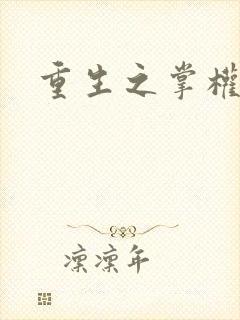 重生之掌權
凜凜年